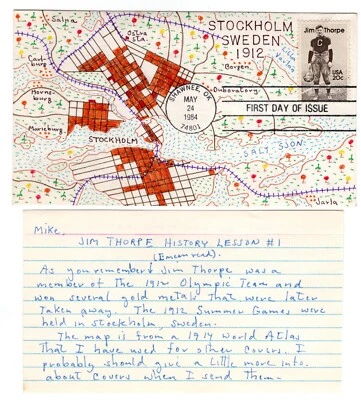 Salpa
Ostra
STA.
STOCKHOLM
SWEDEN
1912
Jim Thorpe
USA
20c
Carlsburg
Borgen
Lilla
Vartan
Hornsburg
SHAWNEE, OK
MAY
24
1984
74801
FIRST DAY OF ISSUE
Marieburg
STOCKHOLM
SALTSJON
Jarla
Mike,
JIM THORPE HISTORY LESSON #1
As you remember Jim Thorpe was a
member of the 1912 Olympic Team and
won several gold metals that were later
taken away. The 1912 Summer Games were
held in Stockholm, Sweden.
The map is from a 1914 World Atlas
that I have used for other covers. I
probably should give a little more info.
about covers when I send them-